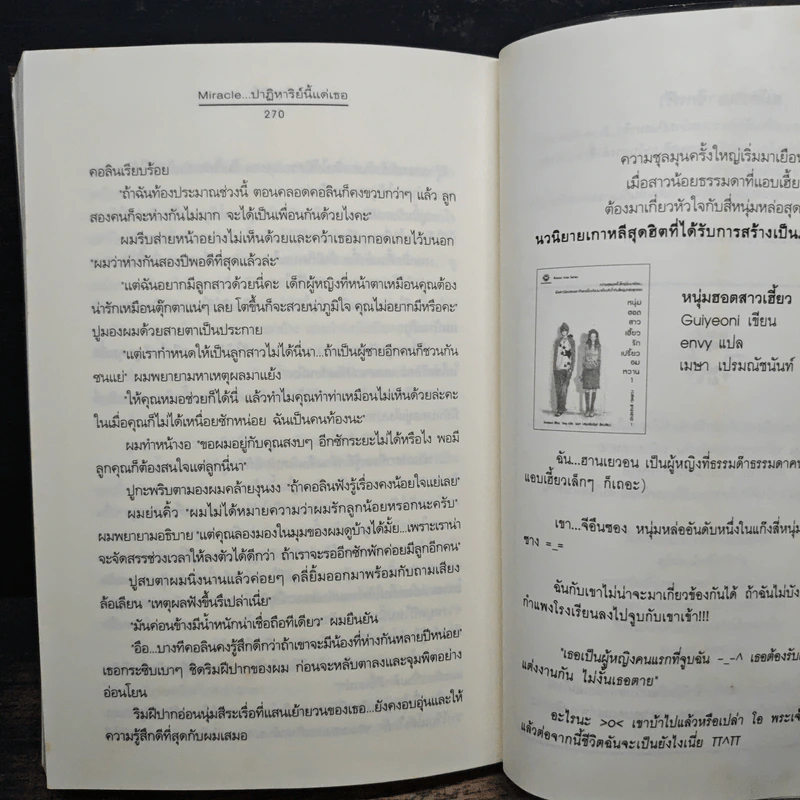 Miracle...ปาฏิหาริย์นี้แด่เธอ
270
คอลินเรียบร้อย
"ถ้าฉันท้องประมาณช่วงนี้ ตอนคลอดคอลินก็คงขวบกว่าๆ แล้ว ลูก
สองคนก็จะห่างกันไม่มาก จะได้เป็นเพื่อนกันด้วยไงคะ"
ผมรีบส่ายหน้าอย่างไม่เห็นด้วยและคว้าเธอมากอดเกยไว้บนอก
"ผมว่าห่างกันสองปีพอดีที่สุดแล้วล่ะ"
"แต่ฉันอยากมีลูกสาวด้วยนี่คะ เด็กผู้หญิงที่หน้าตาเหมือนคุณต้อง
น่ารักเหมือนตุ๊กตาแน่ๆ เลย โตขึ้นก็จะสวยน่าภูมิใจ คุณไม่อยากมีหรือคะ"
ปูมองผมด้วยสายตาเป็นประกาย
"แต่เรากำหนดให้เป็นลูกสาวไม่ได้นี่นา...ถ้าเป็นผู้ชายอีกคนก็ชวนกัน
ซนแย่" ผมพยายามหาเหตุผลมาแย้ง
"ให้คุณหมอช่วยก็ได้นี่ แล้วทำไมคุณทำท่าเหมือนไม่เห็นด้วยล่ะคะ
ในเมื่อคุณก็ไม่ได้เหนื่อยซักหน่อย ฉันเป็นคนท้องนะ"
ผมทำหน้างอ "ขอผมอยู่กับคุณสงบๆ อีกซักระยะไม่ได้หรือไง พอมี
ลูกคุณก็ต้องสนใจแต่ลูกนี่นา"
ปูกะพริบตามองผมคล้ายงุนงง "ถ้าคอลินฟังรู้เรื่องคงน้อยใจแย่เลย"
ผมย่นคิ้ว "ผมไม่ได้หมายความว่าผมรักลูกน้อยหรอกนะครับ"
ผมพยายามอธิบาย "แต่คุณลองมองในมุมของผมดูบ้างได้มั้ย...เพราะเราน่า
จะจัดสรรช่วงเวลาให้ลงตัวได้ดีกว่า ถ้าเราจะรออีกซักพักค่อยมีลูกอีกคน"
ปูสบตาผมนิ่งนานแล้วค่อยๆ คลี่ยิ้มออกมาพร้อมกับถามเสียง
ล้อเลียน "เหตุผลฟังขึ้นรึเปล่าเนี่ย"
"มันค่อนข้างมีน้ำหนักน่าเชื่อถือทีเดียว" ผมยืนยัน
"อือ...บางทีคอลินคงรู้สึกดีกว่าถ้าเขาจะมีน้องที่ห่างกันหลายปีหน่อย"
เธอกระซิบเบาๆ ชิดริมฝีปากของผม ก่อนจะหลับตาลงและจุมพิตอย่าง
อ่อนโยน
ริมฝีปากอ่อนนุ่มสีระเรื่อที่แสนเย้ายวนของเธอ...ยังคงอบอุ่นและให้
ความรู้สึกดีที่สุดกับผมเสมอ
ความชุลมุนครั้งใหญ่เริ่มมาเยือน
เมื่อสาวน้อยธรรมดาที่แอบเฮี้ย
ต้องมาเกี่ยวหัวใจกับสี่หนุ่มหล่อสุด
นวนิยายเกาหลีสุดฮิตที่ได้รับการสร้างเป็น
หนุ่ม
ฮอต
สาว
เฮี้ยว
รัก
เปรี้ยว
อม
หวาน
1
หนุ่มฮอตสาวเฮี้ยว
Guiyeoni เขียน
envy แปล
เมษา เปรมณัชนันท์
ฉัน...ฮานเยวอน เป็นผู้หญิงที่ธรรมด๊าธรรมดาคน
แอบเฮี้ยวเล็กๆ ก็เถอะ)
เขา...จีอึนซอง หนุ่มหล่ออันดับหนึ่งในแก๊งสี่หนุ่ม
ซาง =_=
ฉันกับเขาไม่น่าจะมาเกี่ยวข้องกันได้ ถ้าฉันไม่บัง
กำแพงโรงเรียนลงไปจูบกับเขาเข้า!!!
"เธอเป็นผู้หญิงคนแรกที่จูบฉัน -_-^ เธอต้องรับ
แต่งงานกัน ไม่งั้นเธอตาย"
อะไรนะ >o< เขาบ้าไปแล้วหรือเปล่า โอ พระเจ้
แล้วต่อจากนี้ชีวิตฉันจะเป็นยังไงเนี่ย TT^TT